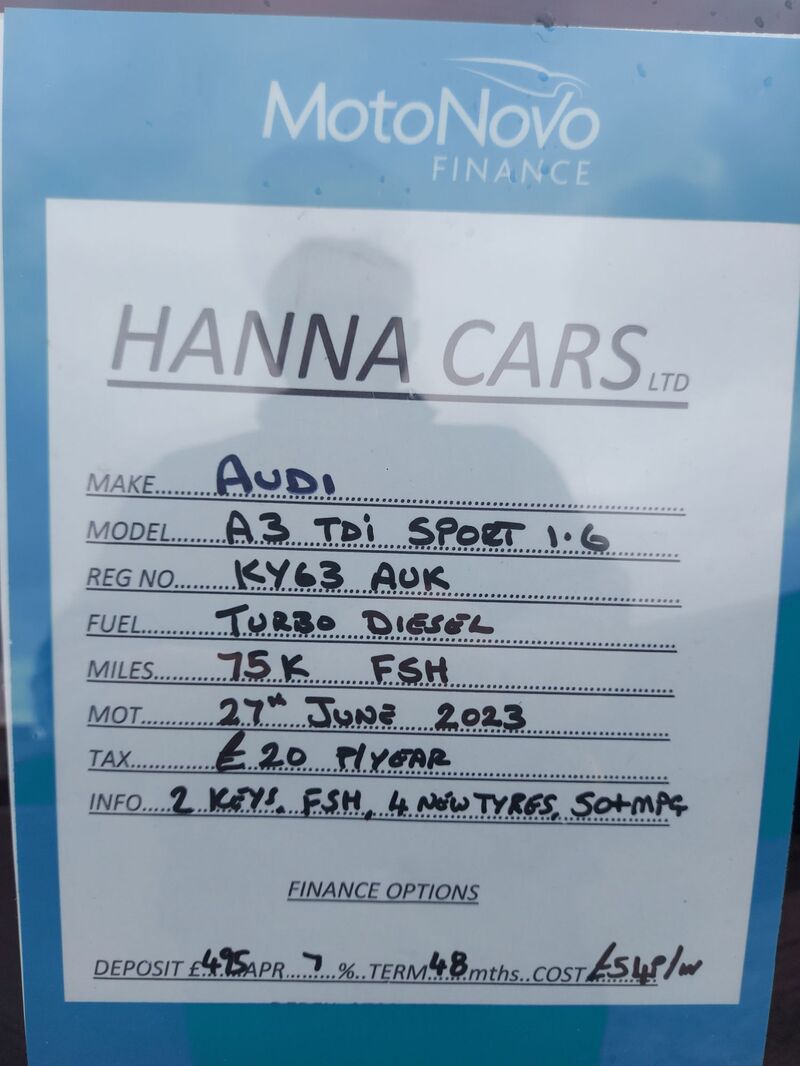 MotoNovo
FINANCE
HANNA CARS LTD
MAKE......AUDI
MODEL.....A3 TDi SPORT 1.6
REG NO.....KY63 AUK
FUEL.....TURBO DIESEL
MILES.....75K FSH
MOT.....27th JUNE 2023
TAX.....£20 P/YEAR
INFO....2 KEYS, FSH, 4 NEW TYRES, 50+MPG
FINANCE OPTIONS
DEPOSIT £495 APR.....7..%..TERM 48 mths..COST £54P/W